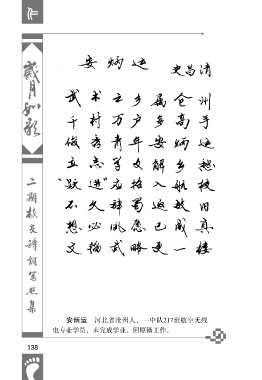 作
岁月如歌
二期校友诗词写照集
安炳运
史昌清
武术之乡属仓州
千村万户多高手
俊秀青年安炳运
立志学文解乡愁
“跃进”应招入航校
不久辞蜀返故旧
想必风愿已成真
文韬武略更一楼
安炳运 河北省沧州人，一中队217班航空无线
电专业学员，未完成学业，回原籍工作。
138